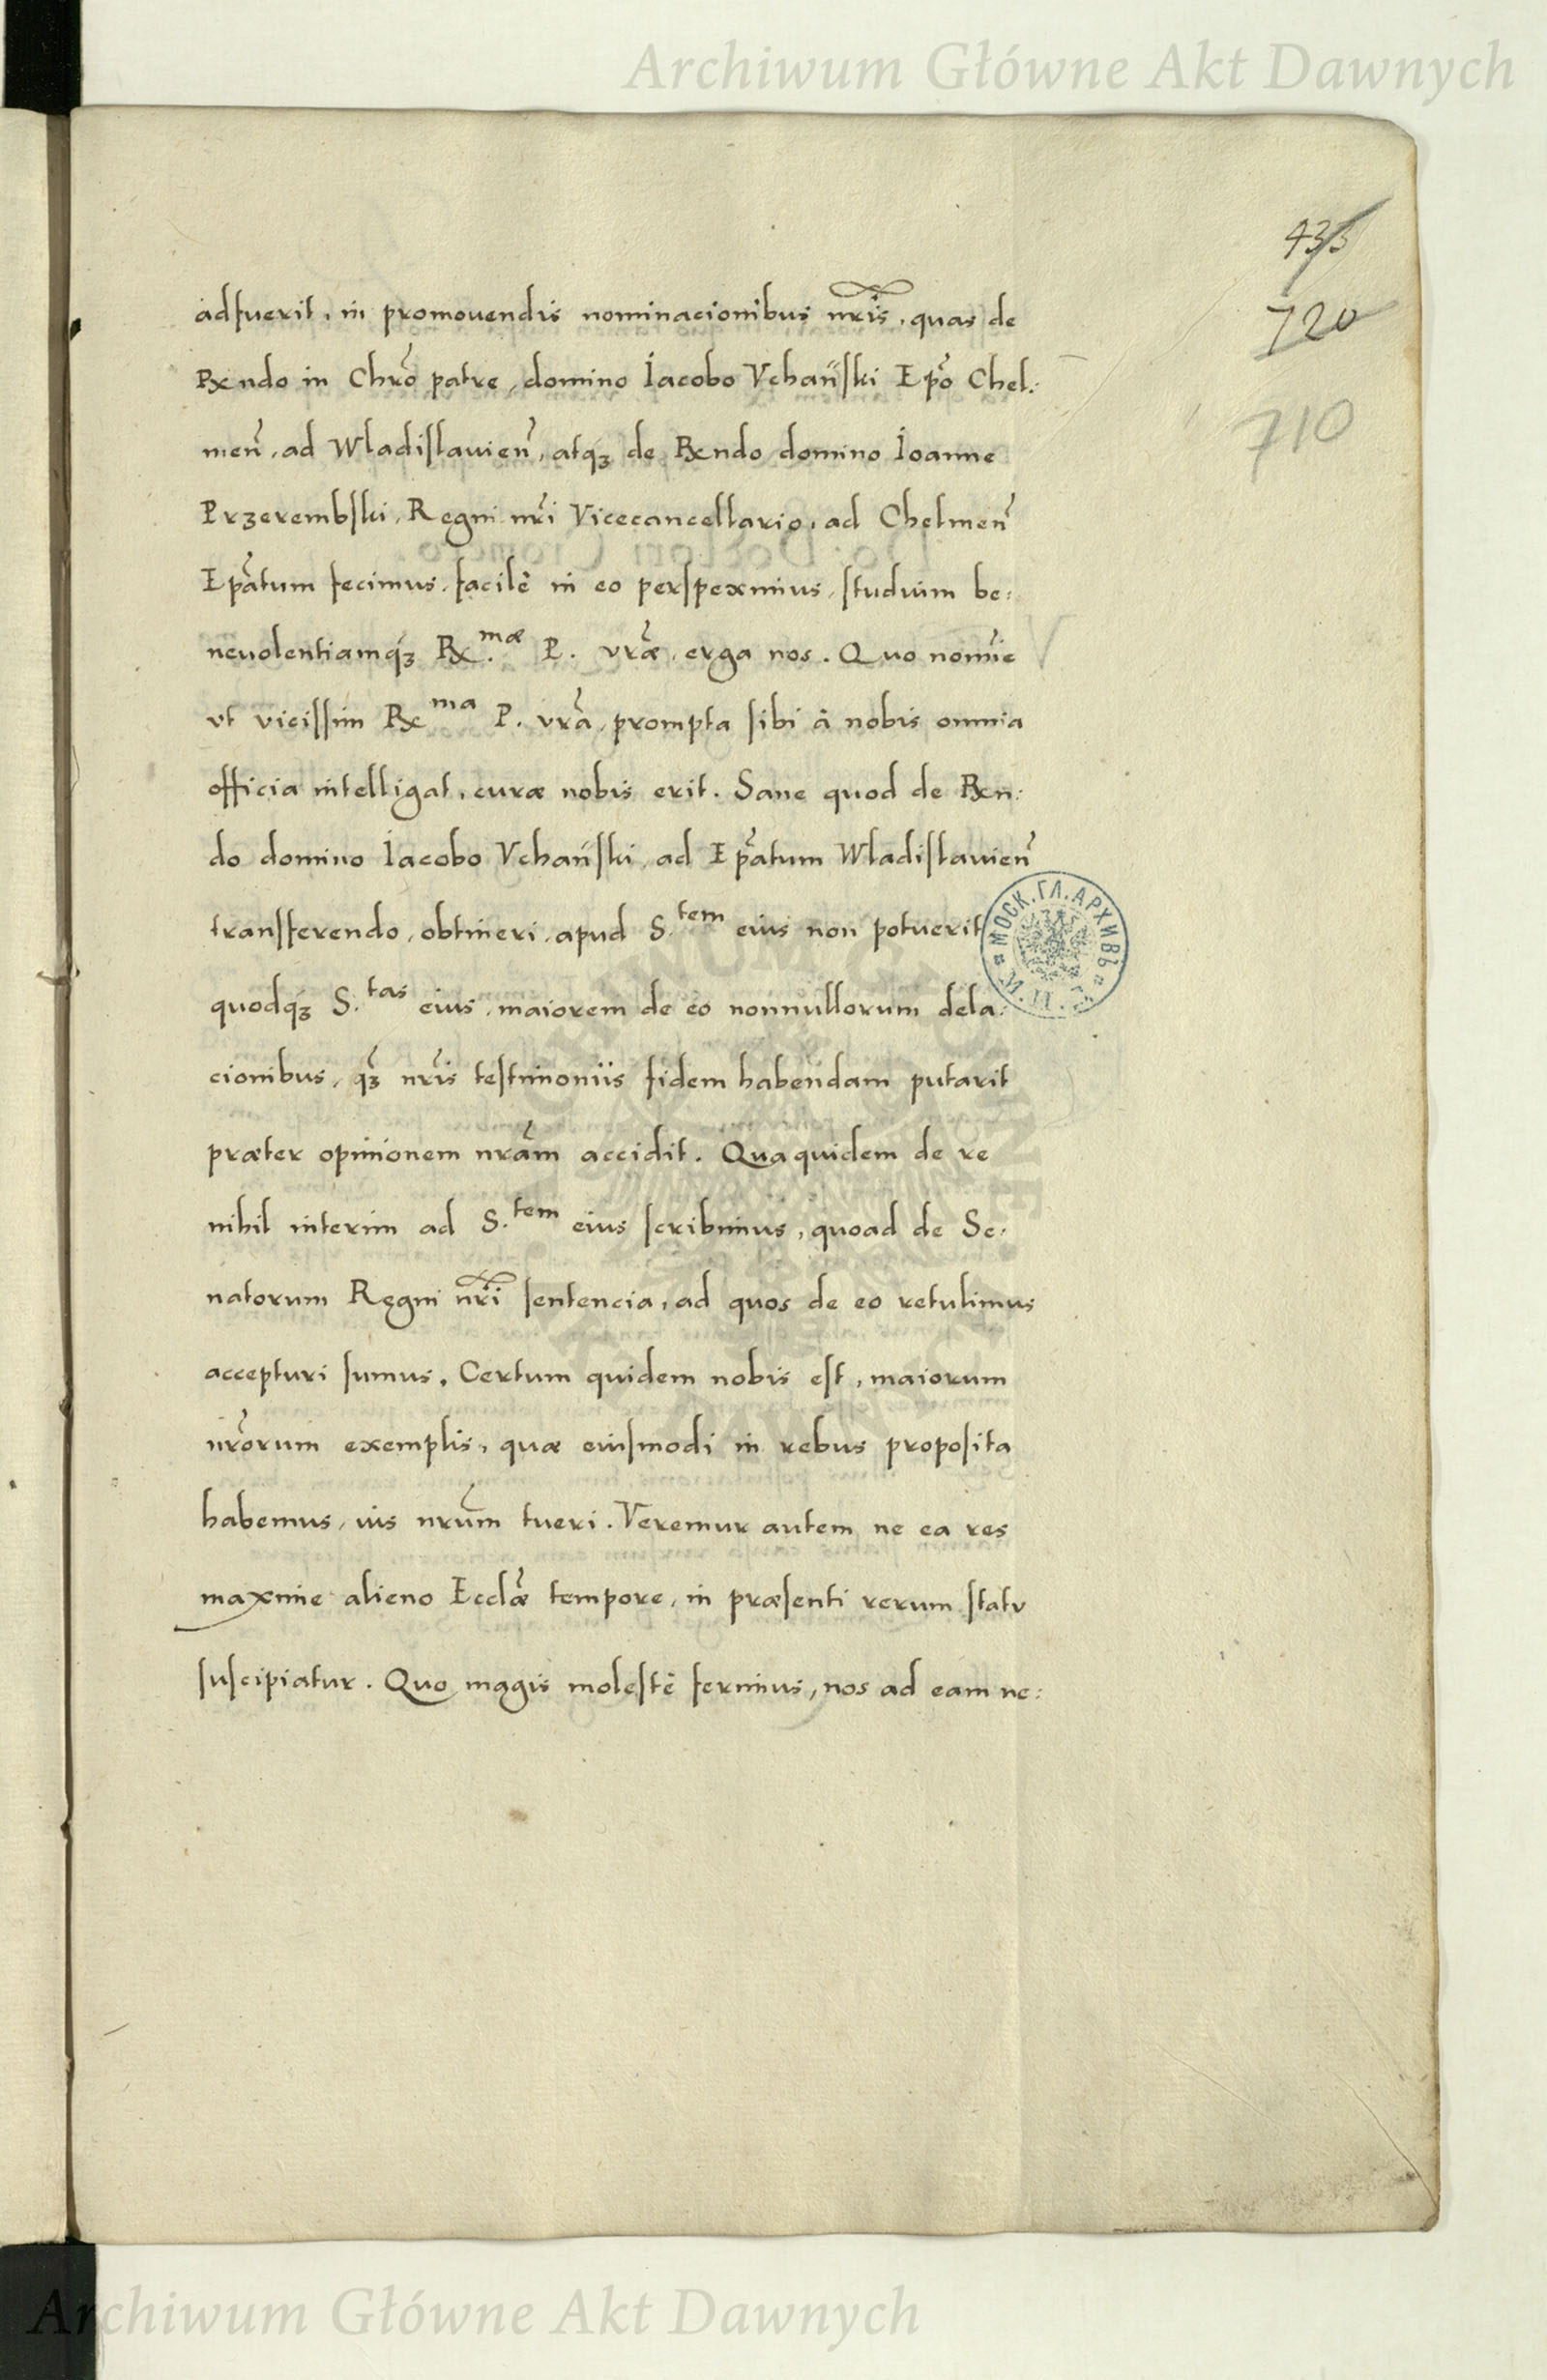 Archiwum Główne Akt Dawnych
433
720
710
adfuerit, in promouendis nominacionibus nr̃is, quas de
Rx̃ndo in Chrõ patre, domino Iacobo Vchañski Ep̃o Chel:
meñ, ad Wladislauieñ, atq́ꝫ de Rx̃ndo domino Ioanne
Przerembski, Regni nr̃i Vicecancellario, ad Chelmeñ
Ep̃atum fecimus, facilè in eo perspeximus, studium be:
neuolentiamq́ꝫ Rx.mæ P. vr̃æ, erga nos. Quo nomĩe
vt vicissim Rx ma P. vr̃a, prompta sibi à nobis omnia
officia intelligat, curæ nobis erit. Sane quod de Rx̃n:
do domino Iacobo Vchañski, ad Ep̃atum Wladislauieñ
transferendo, obtineri, apud S.tem eius non potuerit
quodq́ꝫ S.tas eius, maiorem de eo nonnullorum dela:
cionibus, q̃ꝫ nr̃is testimoniis fidem habendam putarit
præter opinionem nr̃am accidit. Qua quidem de re
nihil interim ad S.tem eius scribimus, quoad de Se:
natorum Regni nr̃i sentencia, ad quos de eo retulimus
accepturi sumus. Certum quidem nobis est, maiorum
nr̃orum exemplis, quæ eiusmodi in rebus proposita
habemus, ius nr̃um tueri. Veremur autem ne ea res
maxime alieno Eccl̃æ tempore, in præsenti rerum statu
suscipiatur. Quo magis molestè ferimus, nos ad eam ne:
МОСК. ГЛ. АРХИВЪ
Archiwum Główne Akt Dawnych